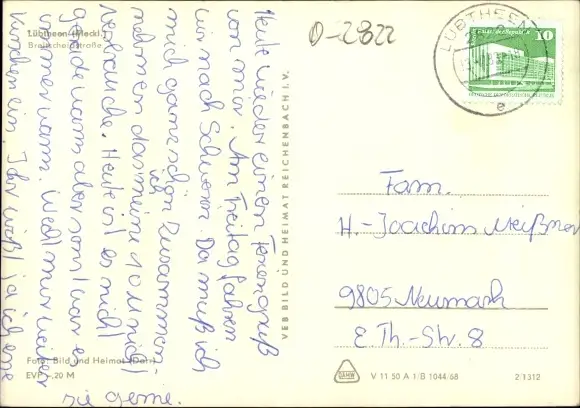 Lübtheen (Meckl.)
Breitscheidstraße
Heute wieder einen Feriengruß
von mir. Am Freitag fahren
wir nach Schwerin. Da muß ich
mich ganz schön zusammen-
nehmen das ich meine 10 M nicht
verbrauche. Heute ist es nicht
gerade warm aber sonst war es
immer warm. Wedl nur wieder
Karten ein. Ihr wißt ja ich
sie gerne.
Foto: Bild und Heimat (Darr)
EVP -,20 M
VEB BILD UND HEIMAT REICHENBACH I. V.
D-2822
LÜBTHEEN
10
Fam.
H.-Joachim Meißner
9805 Neumark
E. Th.-Str. 8
V 11 50 A 1/B 1044/68
2/1312